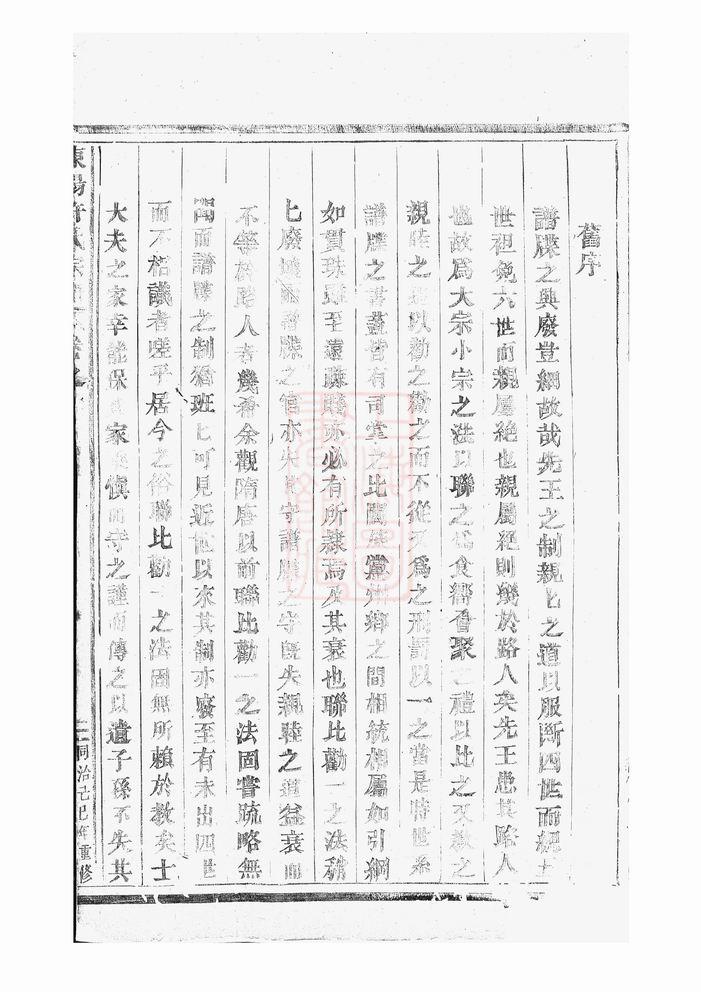 舊序
譜牒之興廢豈細故哉先王之制親親之道以服斷四世而緦
世袒免六世而親屬絕也親屬絕則幾於路人矣先王患其路人
也故為大宗小宗之法以聯之為食饗會聚之禮以比之又教之
親睦之道以勸之勸之而不從又為之刑罰以一之當是時世系
譜牒之書蓋皆有司掌之比閭族黨州鄉之間相統相屬如引綱
如貫珠雖至遠疎賤亦必有所隸焉及其衰也聯比勸一之法稍
七廢壞而譜牒之官亦失其守譜牒之守既失親睦之道益衰而
不等於路人者幾希余觀隋唐以前聯比勸一之法固嘗疏略無
聞而譜牒之制猶班七可見近世以來其制亦廢至有未出四世
而不相識者嗟乎居今之俗聯比勸一之法固無所賴於教矣士
大夫之家幸能保其家慎而守之謹而傳之以遺子孫不失其
同治己巳年重修